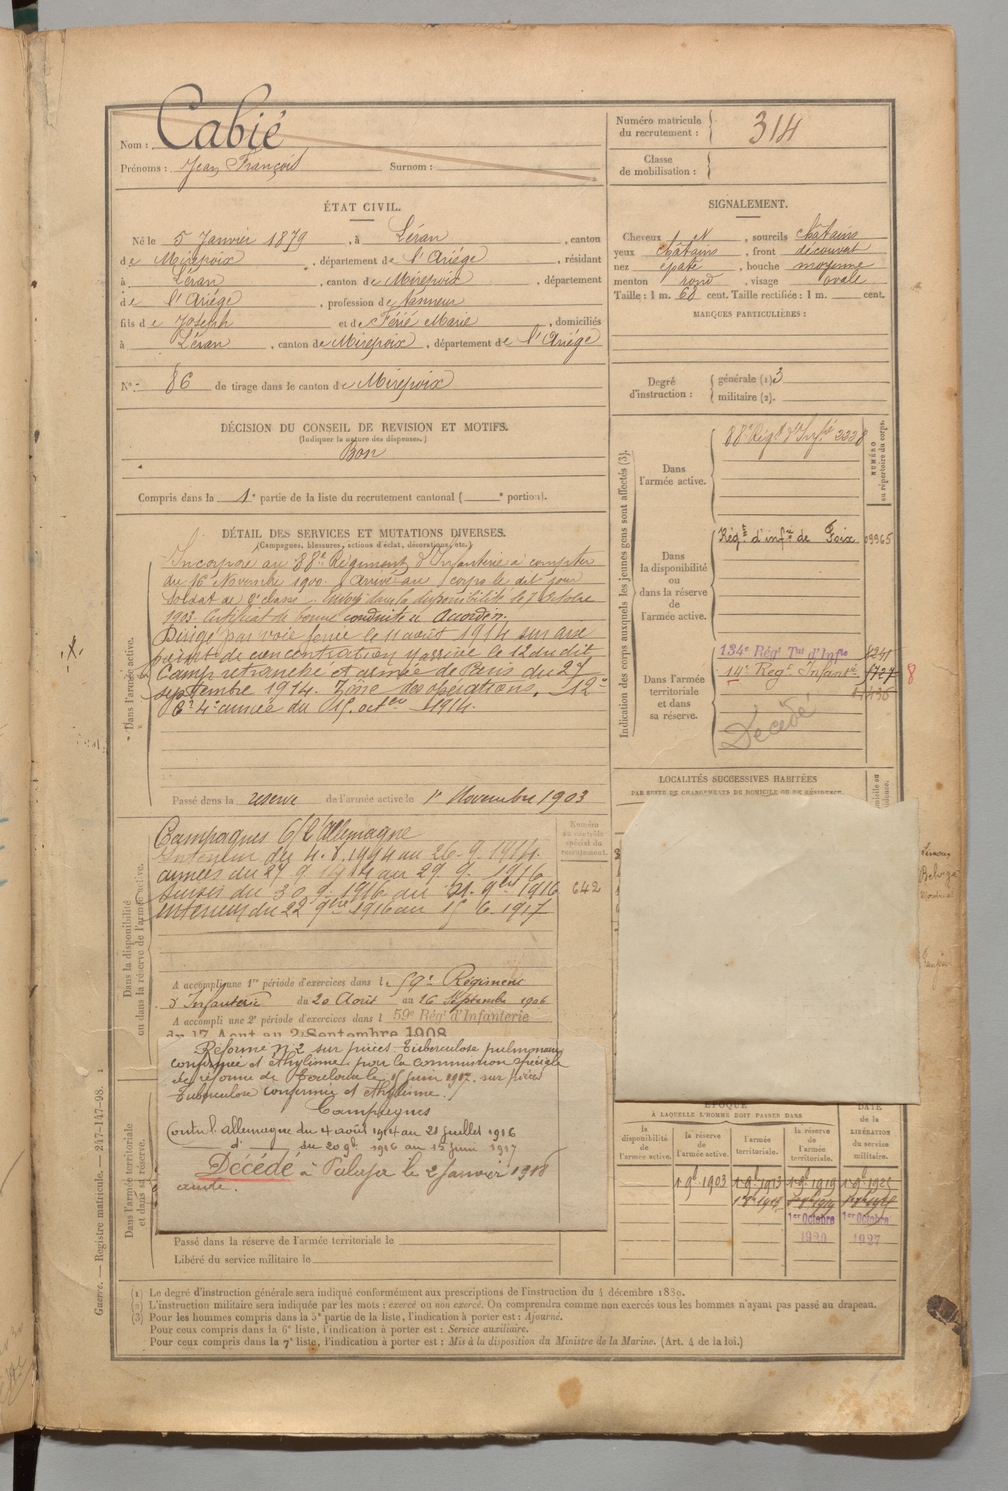 Nom : Cabié
Prénoms : Jean François Surnom :
Numéro matricule du recrutement : 314
Classe de mobilisation :
ÉTAT CIVIL.
Né le 5 Janvier 1879, à Léran, canton
de Mirepoix, département de l'Ariége, résidant
à Léran, canton de Mirepoix, département
de l'Ariége, profession de tanneur
fils de Joseph et de Férié Marie, domiciliés
à Léran, canton de Mirepoix, département de l'Ariége
N° 86 de tirage dans le canton de Mirepoix
SIGNALEMENT.
Cheveux et N, sourcils châtains
yeux châtains, front découvert
nez épaté, bouche moyenne
menton rond, visage ovale
Taille : 1 m. 68 cent. Taille rectifiée : 1 m. cent.
MARQUES PARTICULIÈRES :
Degré d'instruction : générale (1) 3
militaire (2).
DÉCISION DU CONSEIL DE REVISION ET MOTIFS.
(Indiquer la nature des dispenses.)
Bon
Compris dans la 1e partie de la liste du recrutement cantonal ( e portion).
DÉTAIL DES SERVICES ET MUTATIONS DIVERSES.
(Campagnes, blessures, actions d'éclat, décorations, etc.)
Dans l'armée active.
Incorporé au 88e Régiment d'Infanterie à compter
du 16 Novembre 1900. Arrivé au corps le dit jour
Soldat de 2e classe. Envoyé dans la disponibilité le 7 Octobre
1903. Certificat de bonne conduite " Accordé ".
Dirigé par voie ferrée le 11 août 1914 sur
de concentration y arrivé le 12 du dit
Camp retranché et armée de Paris du 27
septembre 1914. Zone des opérations. 12e
4e armée du 15 octbre 1914.
Passé dans la réserve de l'armée active le 1er Novembre 1903
Indication des corps auxquels les jeunes gens sont affectés (3).
NUMÉRO au répertoire du corps.
Dans l'armée active.
88e Régt d'Infie 2338
Dans la disponibilité ou dans la réserve de l'armée active.
Régt d'infie de Foix 09965
Dans l'armée territoriale et dans sa réserve.
134e Régt Tal d'Infie
14e Régt Infantie
8
Décédé
LOCALITÉS SUCCESSIVES HABITÉES
PAR SUITE DE CHANGEMENTS DE DOMICILE OU DE RÉSIDENCE.
Dans la disponibilité ou dans la réserve de l'armée active.
Numéro au contrôle spécial du recrutement.
642
Campagnes C/ l'Allemagne
Intérieur du 4.8.1914 au 26.9.1914.
armées du 27 9 1914 au 29 9 1916
Sursis du 30 9 1916 au 21 9bre 1916
intérieur du 22 9bre 1916 au 15 6 1917
A accompli une 1re période d'exercices dans le 59e Régiment
d'Infanterie du 20 Août au 16 Septembre 1906
A accompli une 2e période d'exercices dans l 59e Régt d'Infanterie
du 17 Aout au 2 Septembre 1908
Dans l'armée territoriale et dans sa réserve.
Réformé n°2 sur pièces Tuberculose pulmonaire
confirmée et éthylisme par la commission spéciale
de réforme de Toulouse le 15 juin 1917. sur pièces
Tuberculose confirmée et éthylisme.
Campagnes
Contre l'allemagne du 4 août 1914 au 21 juillet 1916
d° du 20 9bre 1916 au 15 juin 1917
Décédé à le 2 Janvier 1918
Passé dans la réserve de l'armée territoriale le
Libéré du service militaire le
ÉPOQUE
À LAQUELLE L'HOMME DOIT PASSER DANS
la disponibilité de l'armée active.
la réserve de l'armée active.
l'armée territoriale.
la réserve de l'armée territoriale.
DATE de la LIBÉRATION du service militaire.
1 9bre 1903 1 9bre 1913 1 9bre 1919 1 9bre 1925
1er Octobre 1er Octobre
1920 1927
(1) Le degré d'instruction générale sera indiqué conformément aux prescriptions de l'instruction du 4 décembre 1889.
(2) L'instruction militaire sera indiquée par les mots : exercé ou non exercé. On comprendra comme non exercés tous les hommes n'ayant pas passé au drapeau.
(3) Pour les hommes compris dans la 5e partie de la liste, l'indication à porter est : Ajourné.
Pour ceux compris dans la 6e liste, l'indication à porter est : Service auxiliaire.
Pour ceux compris dans la 7e liste, l'indication à porter est : Mis à la disposition du Ministre de la Marine. (Art. 4 de la loi.)
Guerre. — Registre matricule. — 247-147-98.